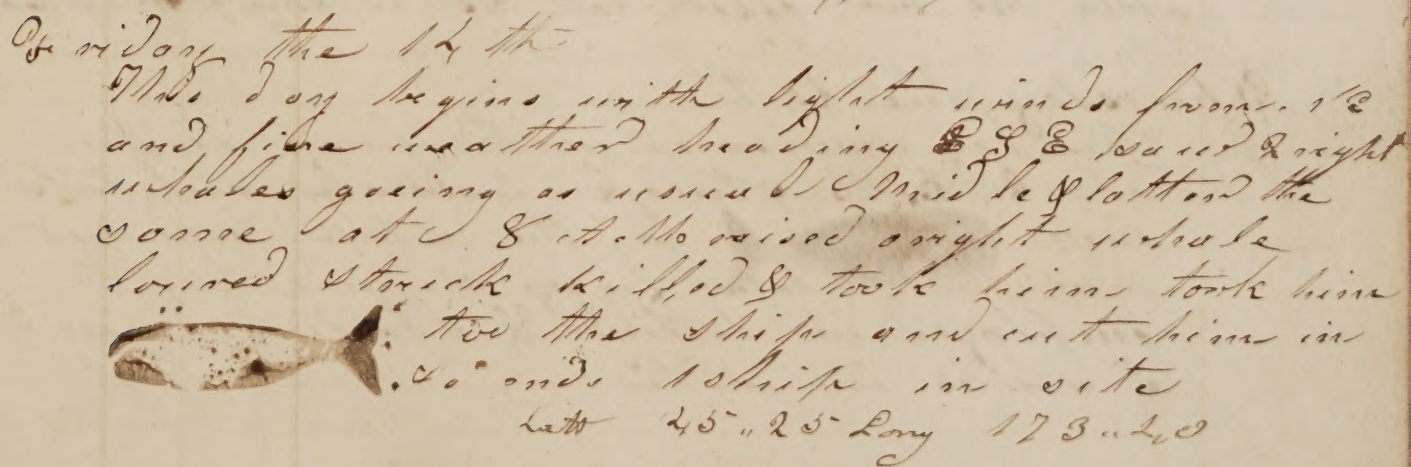 Friday the 14th
This day begins with light winds from NE
and fine weather heading ESE saw 2 right
whales goeing as usual Midle & lattor the
same at 8 AM raised aright whale
loured struck killed & took him took him
too the ship and cut him in
So ends 1 ship in site
Latt 45"25 Long 173"40